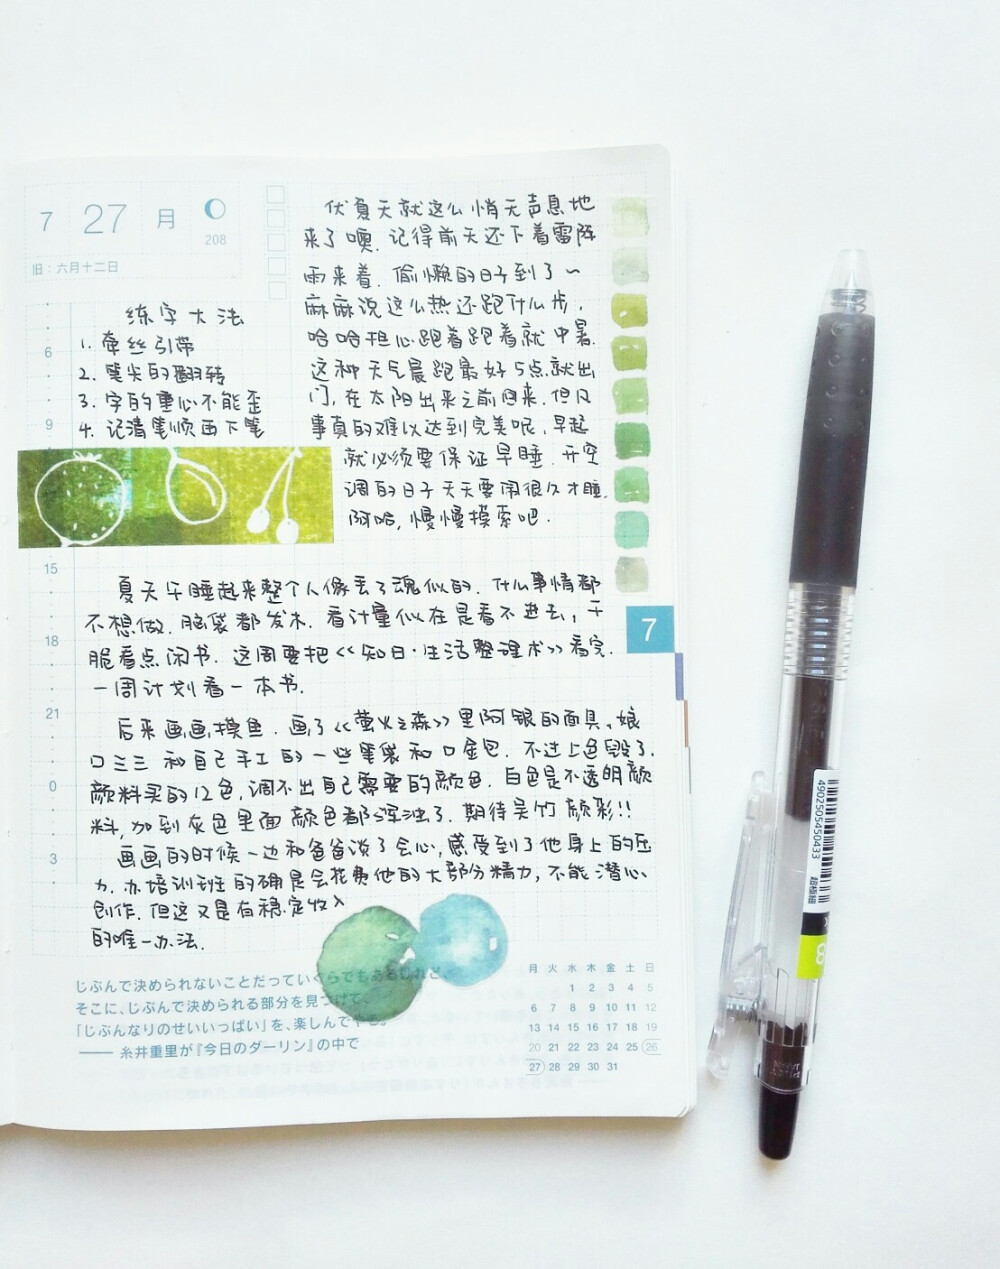 7 27 月
208
旧：六月十二日
练字大法
1. 牵丝引带
2. 笔尖的翻转
3. 字的重心不能歪
4. 记清笔顺再下笔
伏夏天就这么悄无声息地
来了噢. 记得前天还下着雷阵
雨来着. 偷懒的日子到了～
麻麻说这么热还跑什么步,
哈哈担心跑着跑着就中暑.
这种天气晨跑最好5点就出
门, 在太阳出来之前回来. 但凡
事真的难以达到完美呢, 早起
就必须要保证早睡. 开空
调的日子天天要闹很久才睡.
阿哈, 慢慢摸索吧.
夏天午睡起来整个人像丢了魂似的. 什么事情都
不想做. 脑袋都发木. 看计量似在是看不进去, 干
脆看点闲书. 这周要把《知日·生活整理术》看完.
一周计划看一本书.
后来画画摸鱼. 画了《萤火之森》里阿银的面具, 娘
口三三 和自己手工的一些笔袋和口金包. 不过上色毁了.
颜料买的12色, 调不出自己需要的颜色. 白色是不透明颜
料, 加到灰色里面颜色都浑浊了. 期待吴竹颜彩!!
画画的时候一边和爸爸谈了会心, 感受到了他身上的压
力. 办培训班的确是会花费他的大部分精力, 不能潜心
创作. 但这又是有稳定收入
的唯一办法.
6
9
15
18
21
0
3
7
じぶんで決められないことだっていくらでもあるけれど、
そこに、じぶんで決められる部分を見つけて、
「じぶんなりのせいいっぱい」を、楽しんでやる。
—— 糸井重里が『今日のダーリン』の中で
月 火 水 木 金 土 日
1 2 3 4 5
6 7 8 9 10 11 12
13 14 15 16 17 18 19
20 21 22 23 24 25 26
27 28 29 30 31
4902505450433
超極細